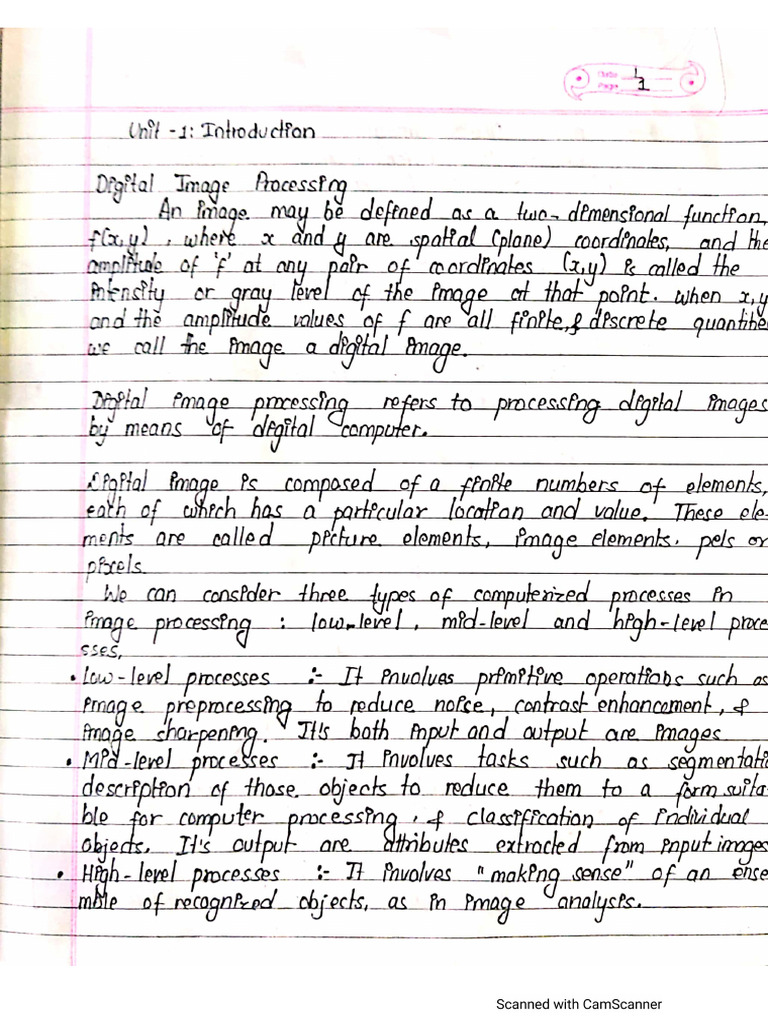 Date
Page 1
Unit -1: Introduction
Digital Image Processing
An image may be defined as a two-dimensional function,
f(x,y), where x and y are spatial (plane) coordinates, and the
amplitude of 'f' at any pair of coordinates (x,y) is called the
intensity or gray level of the image at that point. When x,y
and the amplitude values of f are all finite, & discrete quantitie
we call the image a digital image.
Digital image processing refers to processing digital images
by means of digital computer.
Digital image is composed of a finite numbers of elements,
each of which has a particular location and value. These ele-
ments are called picture elements, image elements, pels or
pixels.
We can consider three types of computerized processes in
image processing : low-level, mid-level and high-level proce
sses.
• Low-level processes :- It involves primitive operations such as
image preprocessing to reduce noise, contrast enhancement, &
image sharpening. It's both input and output are images
• Mid-level processes :- It involves tasks such as segmentati
description of those objects to reduce them to a form suita-
ble for computer processing, & classification of individual
objects. It's output are attributes extracted from input images
• High-level processes :- It involves "making sense" of an ense
mble of recognized objects, as in image analysis.
Scanned with CamScanner